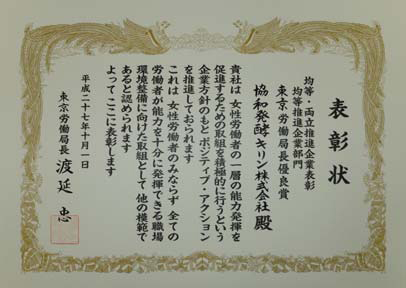 表彰状
均等・両立推進企業表彰
均等推進企業部門
東京労働局長優良賞
協和発酵キリン株式会社 殿
貴社は 女性労働者の一層の能力発揮を
促進するための取組を積極的に行うという
企業方針のもと ポジティブ・アクション
を推進しておられます
これは 女性労働者のみならず 全ての
労働者が能力を十分に発揮できる職場
環境整備に向けた取組として 他の模範で
あると認められます
よって ここに表彰します
平成二十七年十月一日
東京労働局長 渡延 忠